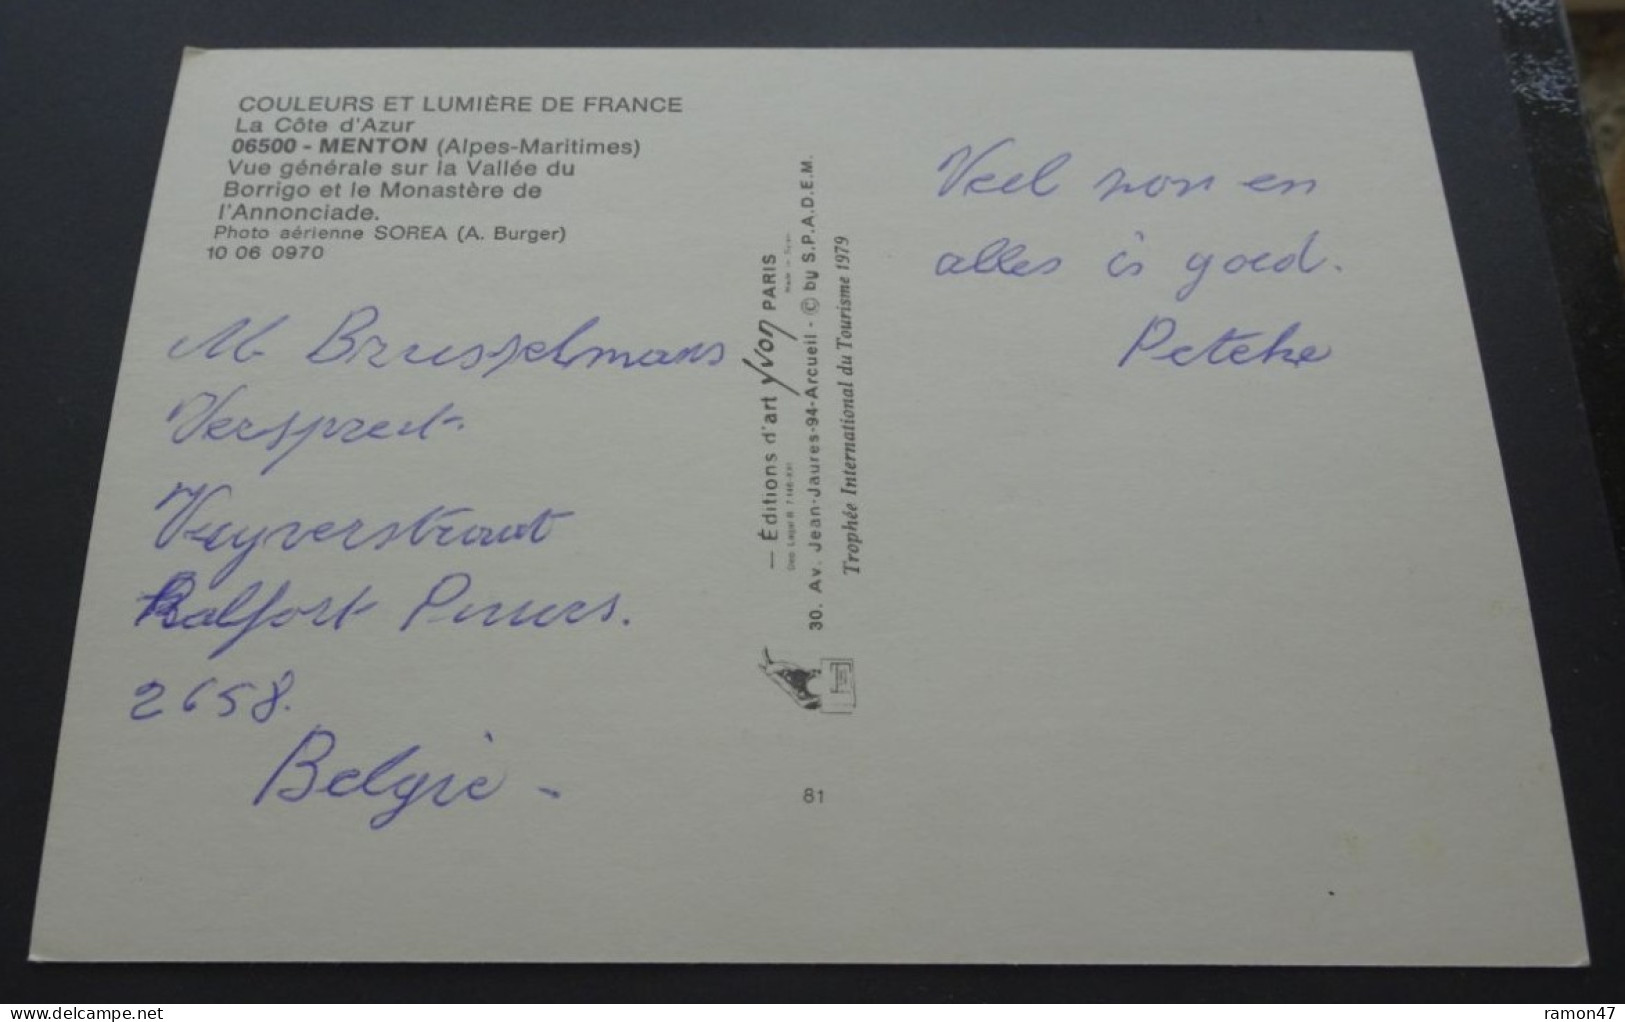 COULEURS ET LUMIÈRE DE FRANCE
La Côte d'Azur
06500 - MENTON (Alpes-Maritimes)
Vue générale sur la Vallée du
Borrigo et le Monastère de
l'Annonciade.
Photo aérienne SOREA (A. Burger)
10 06 0970
M. Brusselmans
Verspreet.
Vuyverstraat
Kalfort Puurs.
2658.
België -
— Éditions d'art Yvon PARIS
30. Av. Jean-Jaures-94-Arcueil - © by S.P.A.D.E.M.
Trophée International du Tourisme 1979
81
Veel zon en
alles is goed.
Peteke
www.delcampe.net
ramon47